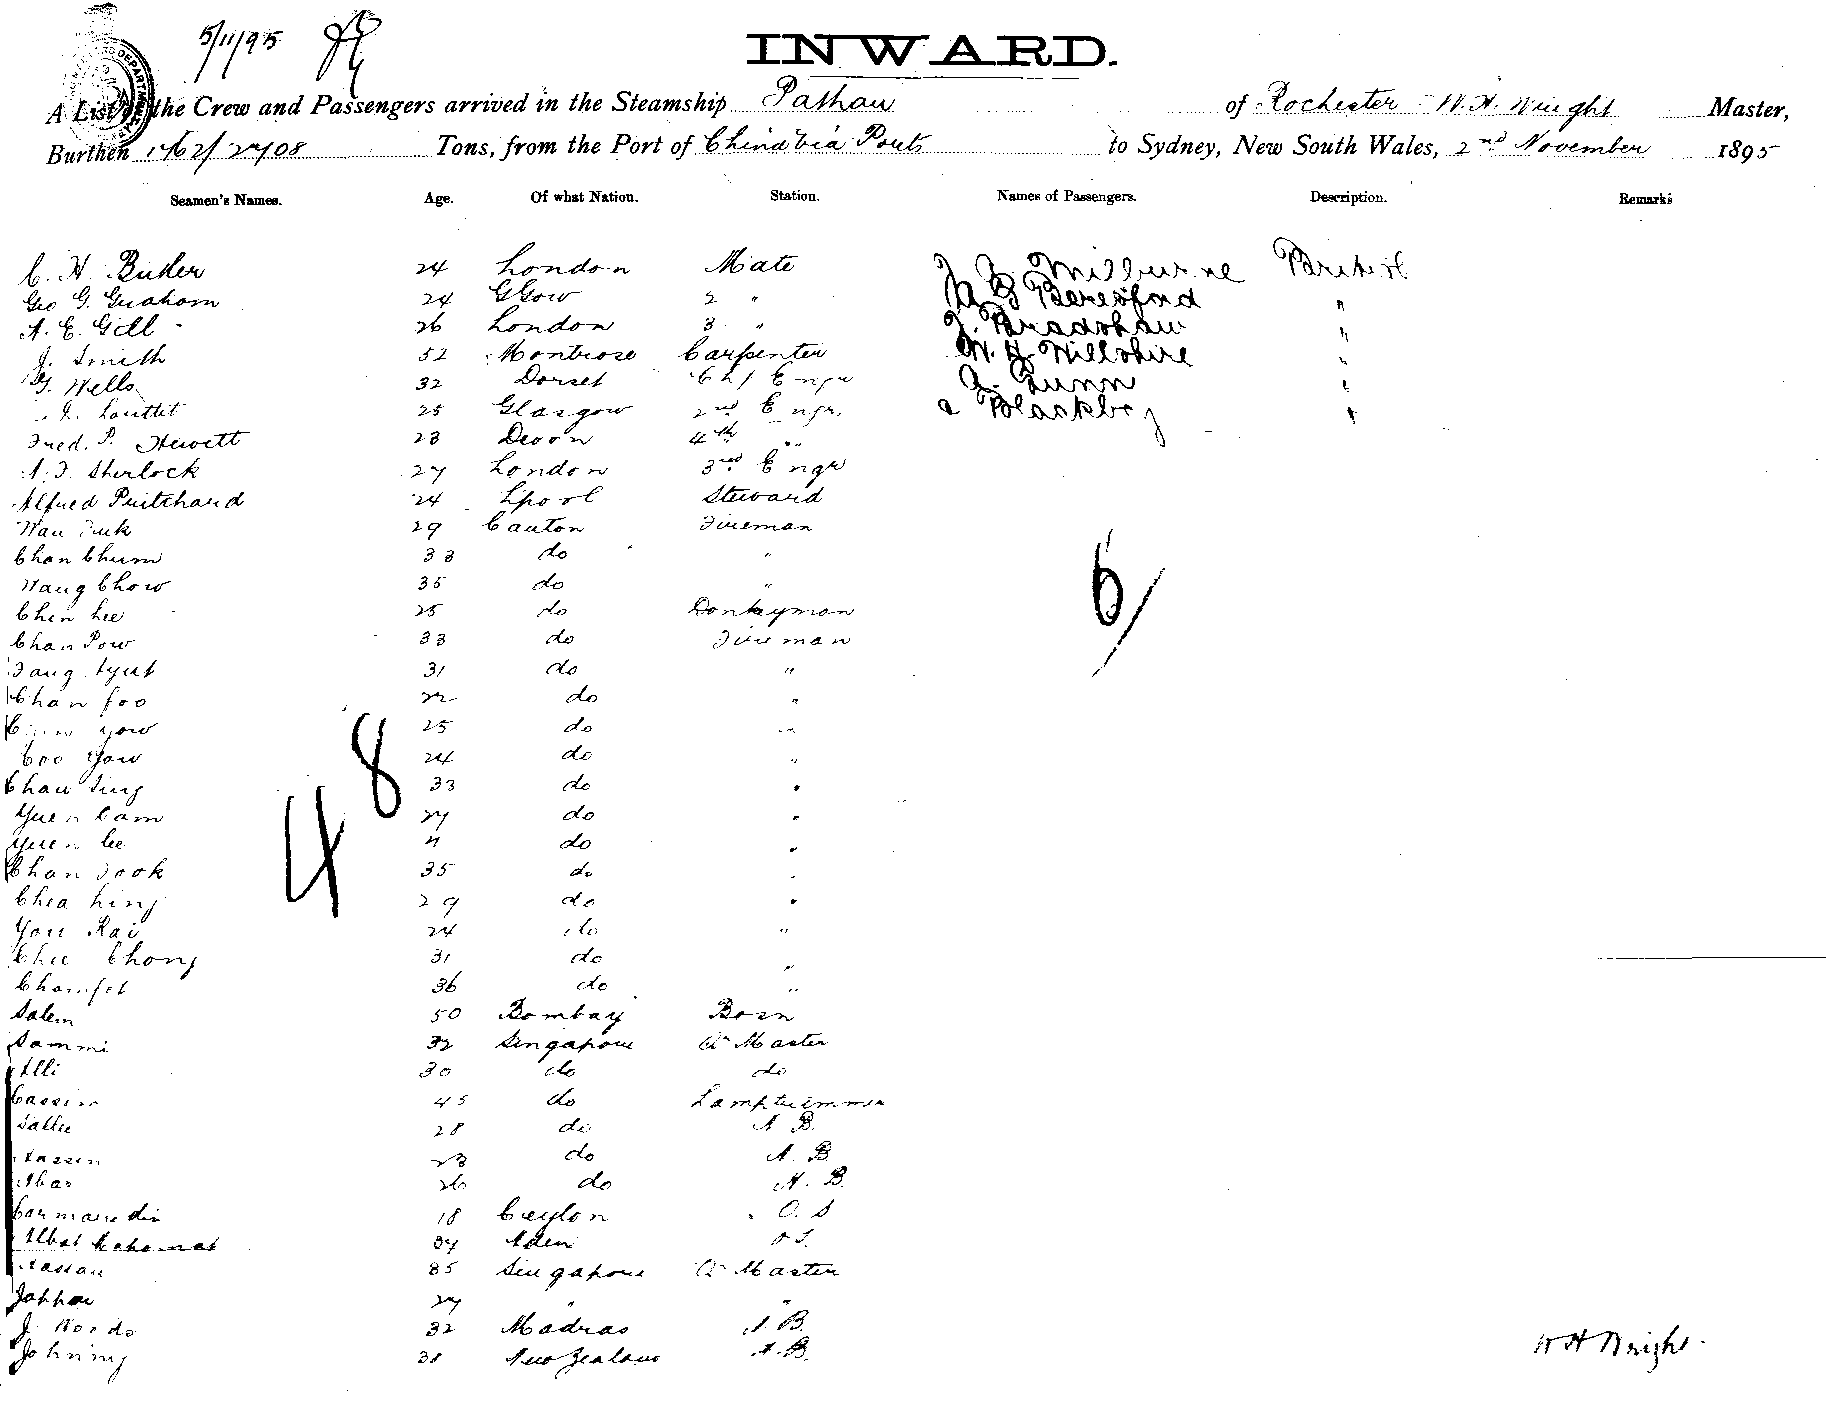 5/11/95
INWARD.
A List of the Crew and Passengers arrived in the Steamship Pathan of Rochester W. H. Wright Master,
Burthen 1762/2708 Tons, from the Port of China via Ports to Sydney, New South Wales, 2nd November 1895
Seamen's Names. Age. Of what Nation. Station. Names of Passengers. Description. Remarks
C. H. Butler 24 London Mate Milburne British
Geo G. Graham 24 GGow 2 " Beresford "
A. E. Gill 26 London 3 " J. Bradshaw "
J. Smith 52 Montrose Carpenter W. H. Willshire "
G. Wells 32 Dorset Chf Engr A. Gunn "
J. Louttit 25 Glasgow 2nd Engr. a Blackboy "
Fred. P. Hewett 23 Devon 4th "
A. J. Sherlock 27 London 3rd Engr
Alfred Pritchard 24 Lpool Steward
Wau Fuk 29 Canton Fireman
Chan Chum 33 do "
Wang Chow 35 do "
Chen Lee 25 do Donkeyman
Chan Pow 33 do Fireman
Fang 31 do "
Chan foo 22 do "
yow 25 do "
Coo Yow 24 do "
Chan Sing 33 do "
Yuen Cam 27 do "
Yuen Lee " do "
Chan Fook 35 do "
Chea hing 29 do "
You Kai 24 do "
Chee Chong 31 do "
36 do "
Salem 50 Bombay Bosn
Sammi 32 Singapore Qr Master
Alli 30 do do
Cassim 45 do Lamptrimmer
Sallee 28 do A B.
Hassen 23 do A. B
Abas 26 do A. B.
18 Ceylon O. S
Mahomat 34 Aden O S.
Hassan 35 Singapore Qr Master
Jappar 27 " "
J. Woods 32 Madras A. B.
Johnny 38 New Zealand A. B.
48
6/
W H Wright